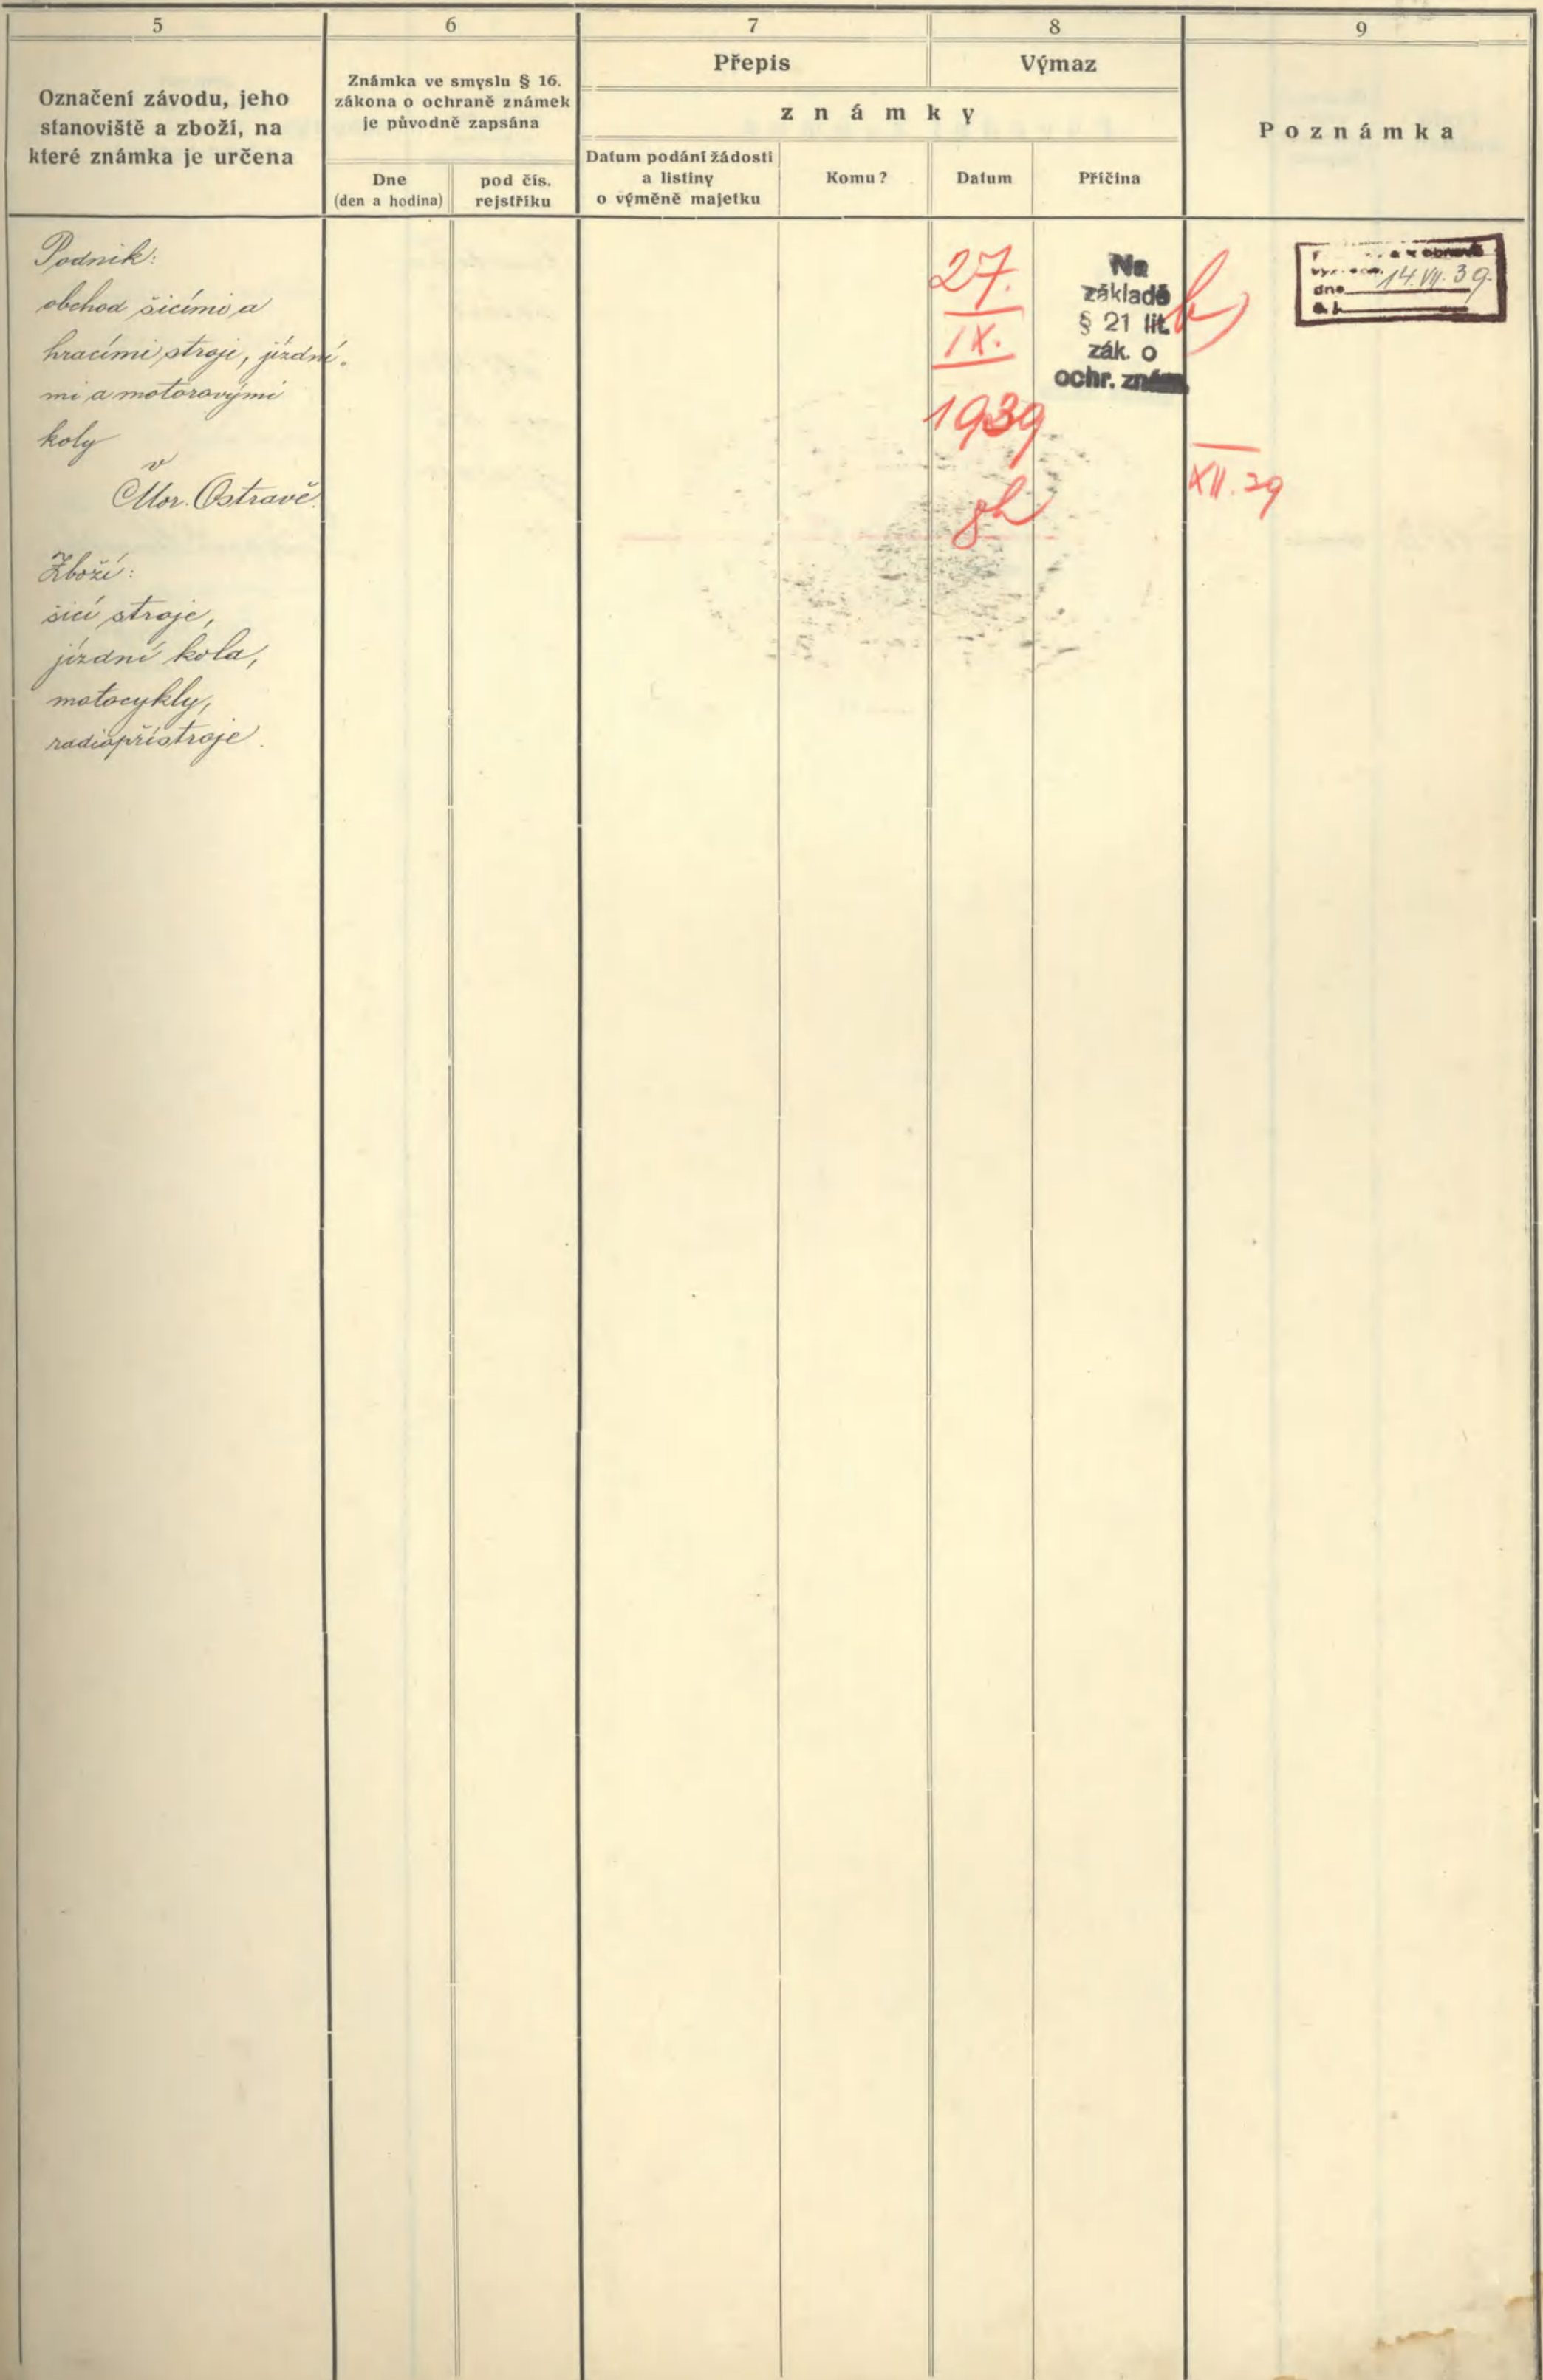 5
6
7
8
9
Označení závodu, jeho
stanoviště a zboží, na
které známka je určena
Známka ve smyslu § 16.
zákona o ochraně známek
je původně zapsána
Dne
(den a hodina)
pod čís.
rejstříku
Přepis
Výmaz
známky
Datum podání žádosti
a listiny
o výměně majetku
Komu?
Datum
Příčina
Poznámka
Podnik:
obchod šicími a
hracími stroji, jízdní-
mi a motorovými
koly
v
Mor. Ostravě.
Zboží:
šicí stroje,
jízdní kola,
motocykly,
radiopřístroje.
27.
IX.
1939
8h
Na
základě
§ 21 lit. b)
zák. o
ochr. znám
XII. 29
dne 14. VII. 39.